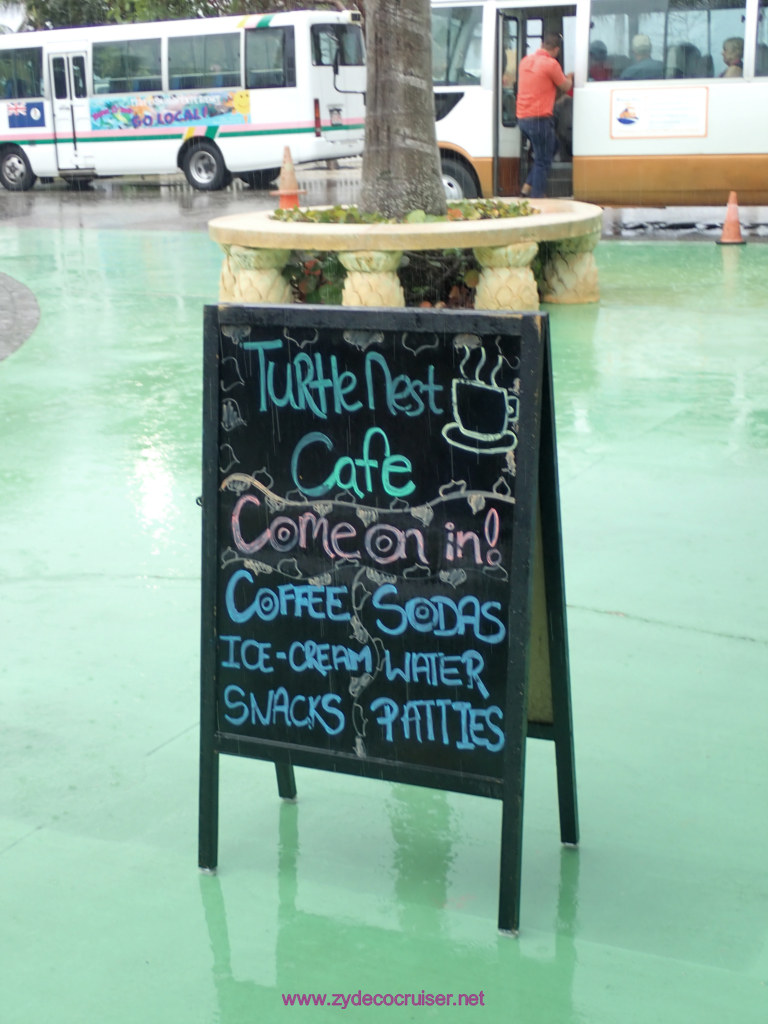 GO LOCAL!
Turtle Nest
Cafe
Come on in!
COFFEE SODAS
ICE-CREAM WATER
SNACKS PATTIES
www.zydecocruiser.net